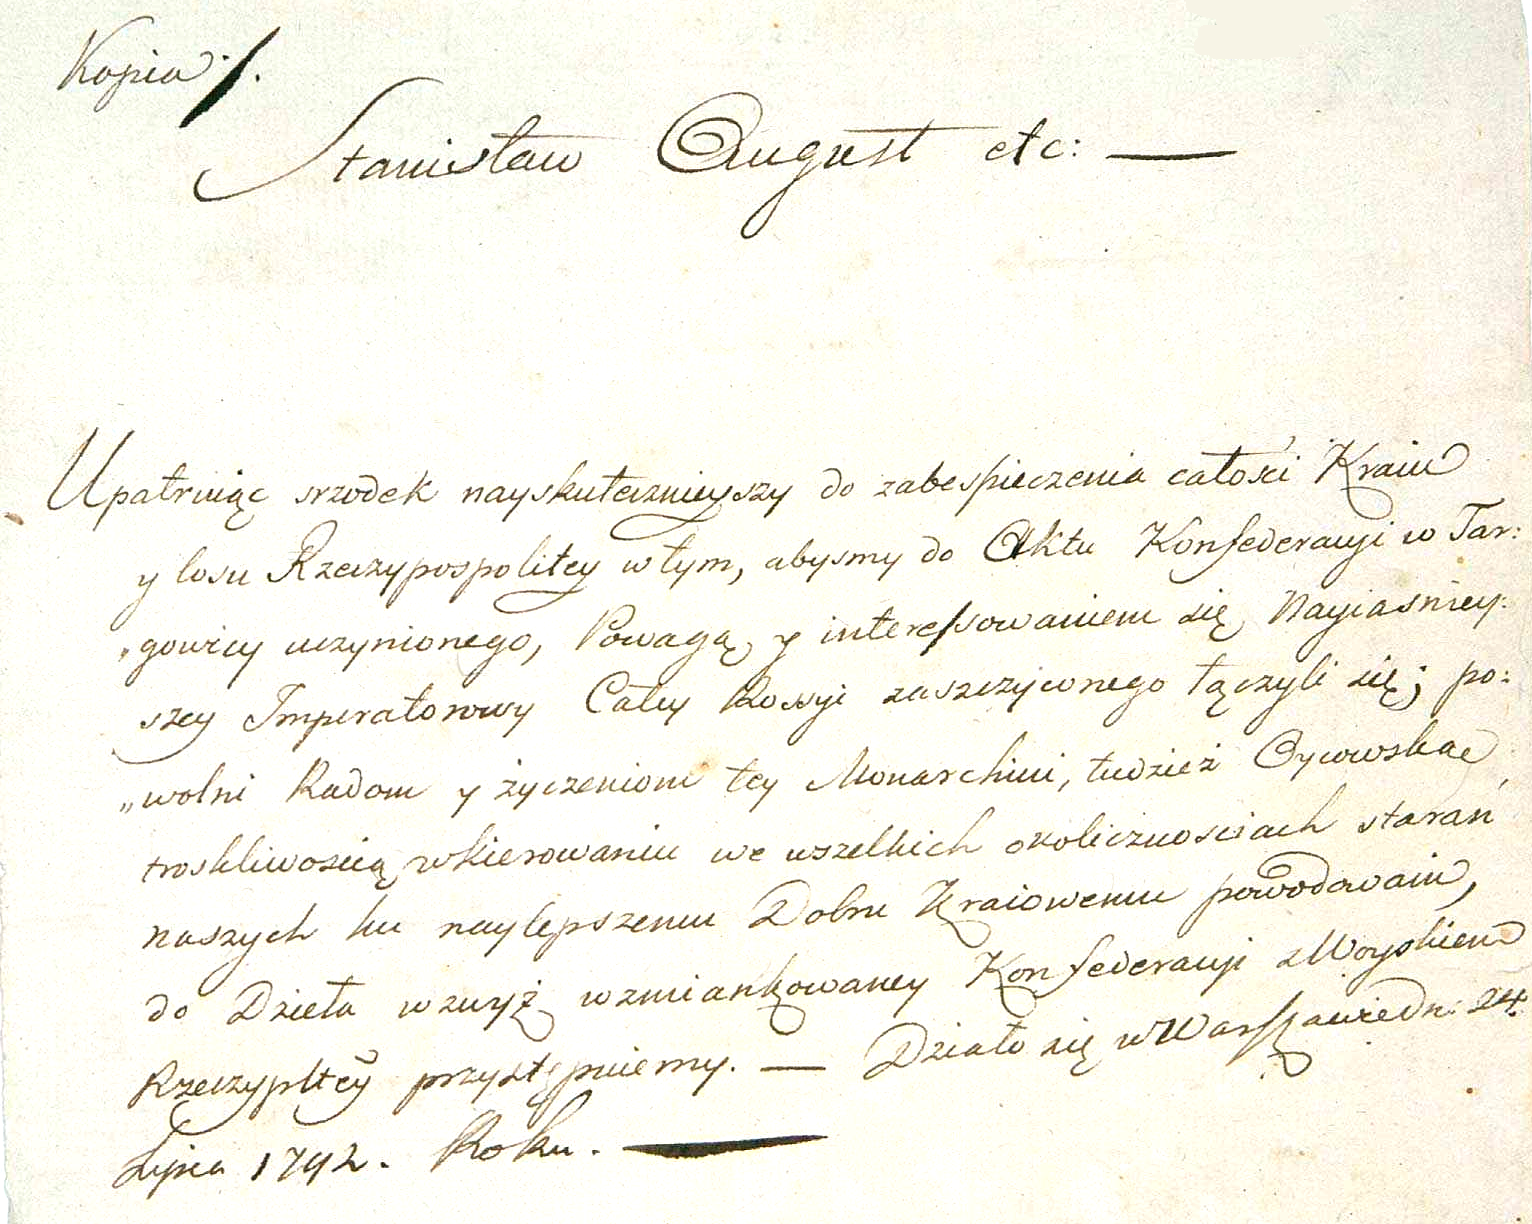 Kopia ./.
Stanisław August etc: —
Upatruiąc srzodek nayskutecznieyszy do zabespieczenia całości Kraiu
y losu Rzeczypospolitey w tym, abysmy do Aktu Konfederacyi w Tar:
„gowicy uczynionego, Powagą y interessowaniem się Nayiasniey:
szey Imperatorowy Całey Rossyi zaszczyconego łączyli się; po:
„wolni Radom y życzeniom tey Monarchini, tudzież Oycowską
troskliwością w kierowaniu we wszelkich okolicznosciach starań
naszych ku naylepszemu Dobru Kraiowemu powodowani,
do Dzieła wzwyż wzmiankowaney Konfederacyi z Woyskiem
Rzeczypltey przystępuiemy. — Działo się w Warszawie Dn: 24.
Lipca 1792. Roku. —